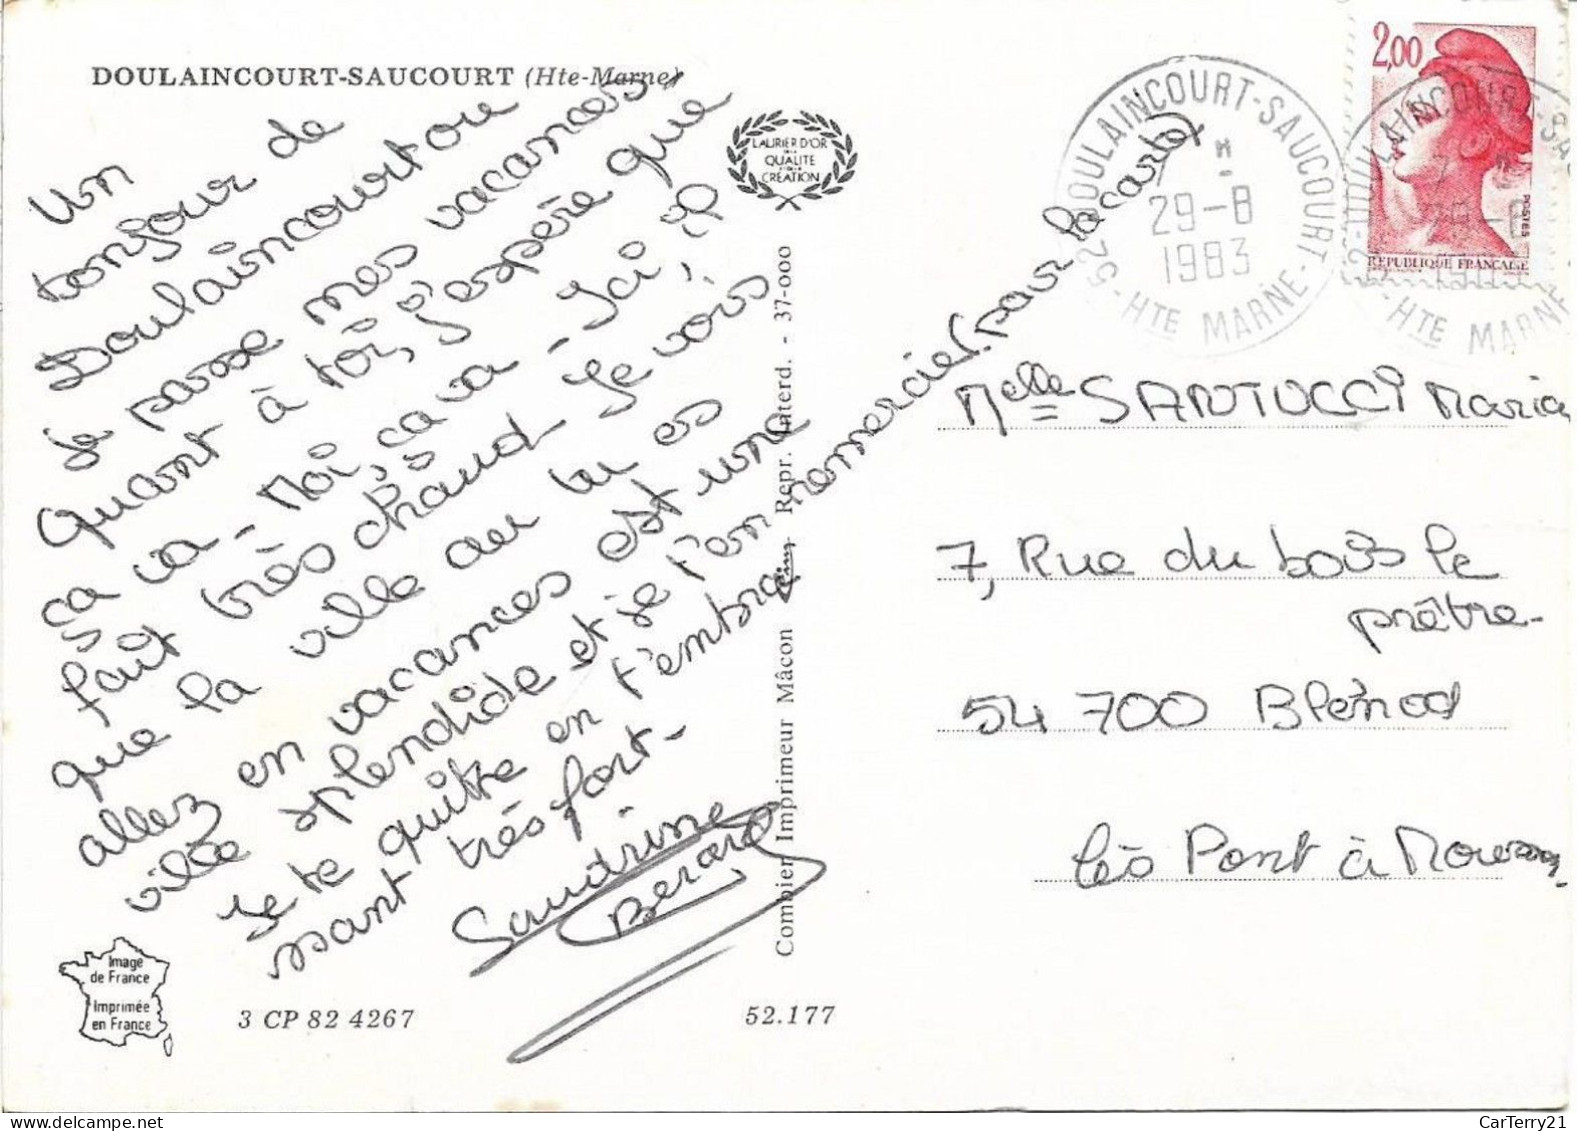 DOULAINCOURT-SAUCOURT (Hte-Marne)
Un
bonjour de
Doulaincourt ou
je passe mes vacances
Quant à toi, j'espère que
ça va - Moi, ça va - Ici, il
fait très chaud - Je vois
que la ville ou tu es
allez en vacances est une
ville splendide et je t'en remercie (pour la carte)
Je te quitte en t'embra
ssant très fort -
Sandrine
Berard
LAURIER D'OR
DE LA
QUALITE
ET DE LA
CREATION
Combier Imprimeur Mâcon Cim Repr. Interd. - 37-000
Image
de France
Imprimée
en France
3 CP 82 4267
52.177
52 DOULAINCOURT-SAUCOURT - HTE MARNE
29-8
1983
2,00
POSTES
REPUBLIQUE FRANCAISE
Melle SANTUCCI Maria
7, Rue du bois le
prêtre -
54 700 Blénod
lès Pont à Mousson
CarTerry21